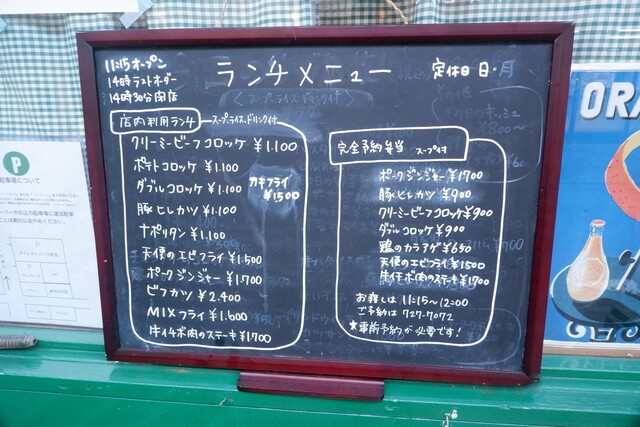 11:15オープン
14時ラストオーダー
14時30分閉店
ランチメニュー
定休日 日・月
店内利用ランチ スープ、ライス、ドリンク付
クリーミービーフコロッケ ¥1.100
ポテトコロッケ ¥1.100
ダブルコロッケ ¥1.100
豚ヒレカツ ¥1.100
ナポリタン ¥1.100
天使のエビフライ ¥1.500
ポークジンジャー ¥1.700
ビフカツ ¥2.400
MIXフライ ¥1.600
牛イチボ肉のステーキ ¥1.700
カキフライ
¥1500
完全予約弁当 スープ付
ポークジンジャー ¥1700
豚ヒレカツ ¥900
クリーミービーフコロッケ ¥900
ダブルコロッケ ¥900
鶏のカラアゲ ¥650
天使のエビフライ ¥1500
牛イチボ肉のステーキ ¥1700
お渡しは 11:15〜12:00
ご予約は 727-7072
★事前予約が必要です!
P
駐車場について
ORA